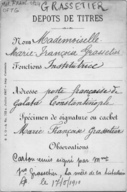 GRASSETIER
DEPOTS DE TITRES
Nom Mademoiselle
Marie Françoise Grassetier
Fonctions Institutrice
Adresse poste française
Galata Constantinople
Spécimen de signature ou cachet
Marie Françoise Grassetier
Observations
Carton unie signé par Mme
Grassetier, la mère de la titulaire
le 17/5/1910